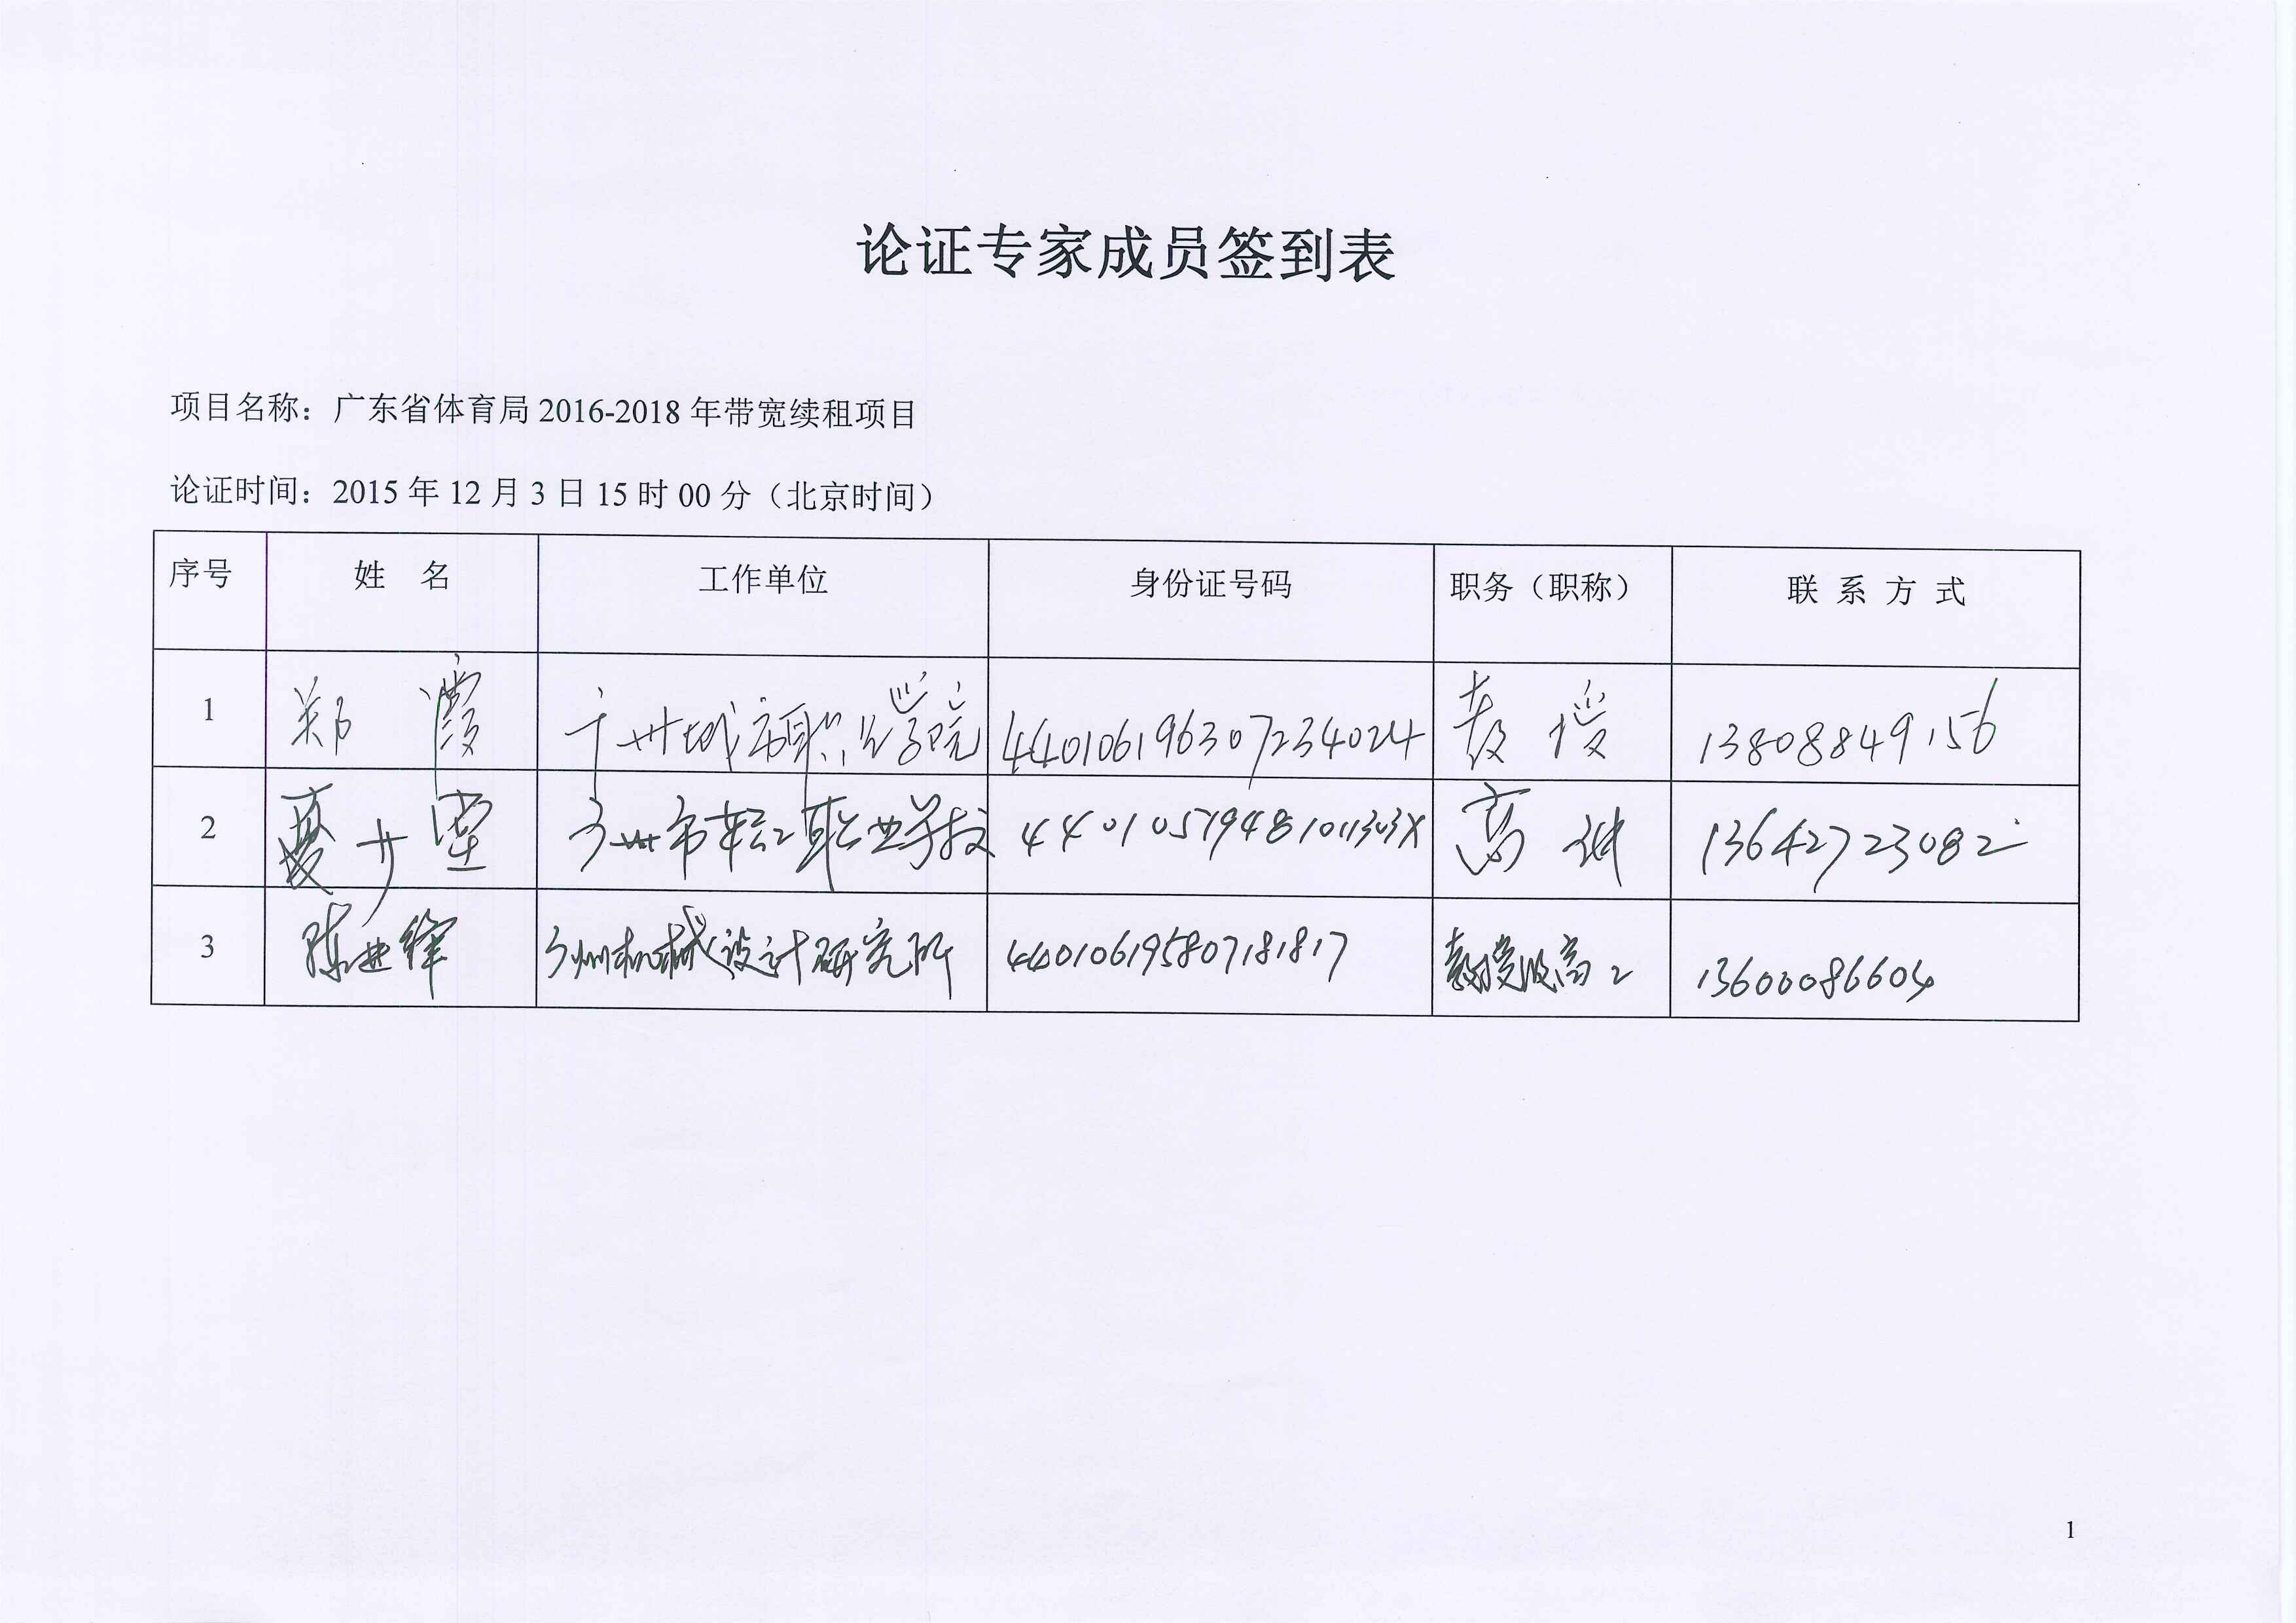 论证专家成员签到表
项目名称：广东省体育局 2016-2018 年带宽续租项目
论证时间：2015 年 12 月 3 日 15 时 00 分（北京时间）
序号 姓 名 工作单位 身份证号码 职务（职称） 联 系 方 式
1 郑霞 广州城市职业学院 440106196307234024 教授 13808849156
2 夏 广州市轻工职业学校 44010519481011303X 高讲 13642723082
3 陈 广州机械设计研究所 440106195807181817 教授级高工 13600086604
1